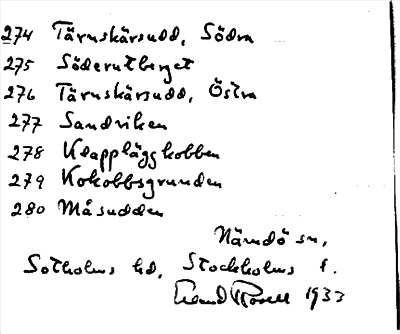 274 Tärnskärsudd, Södra
275 Söderutberget
276 Tärnskärsudd, Östra
277 Sandviken
278 Klappläggkobben
279 Kokobbsgrunden
280 Måsudden
Nämdö sn,
Sotholms hd, Stockholms l.
1933